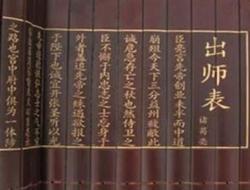 出师表
诸葛亮
臣亮言先帝创业未半而中道
崩殂今天下三分益州疲敝此
诚危急存亡之秋也然侍卫之
臣不懈于内忠志之士忘身于
外者盖追先帝之殊遇欲报之
于陛下也诚宜开张圣听以光
先帝遗德恢弘志士之气不宜
之路也宫中府中俱为一体陟